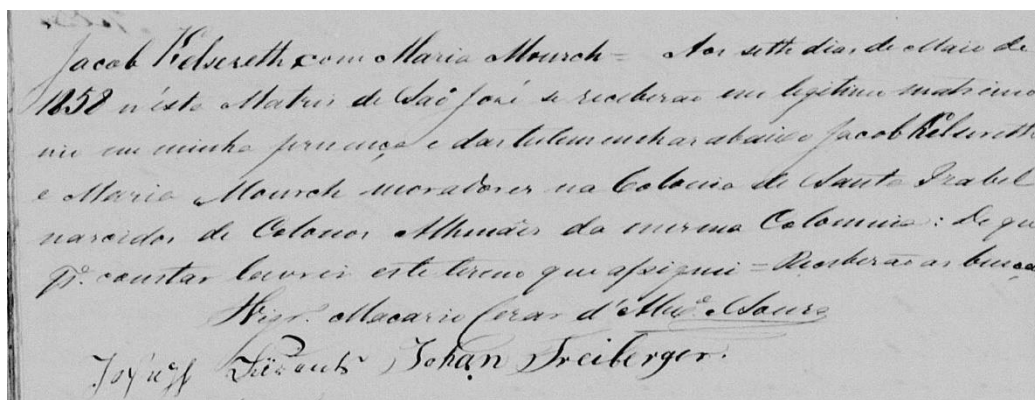 Jacob Kelsereth com Maria Mourch = Aos sette dias de Maio de
1858 n'esta Matris de Saõ José se receberaõ em legitimo matrimo
nio em minha prezença e das testemunhas abaixo Jacob Kelsereth
e Maria Mourch moradores na Colonia de Santa Izabel
nascidos de Colonos Alhmães da mesma Colonnia: De que
pª. constar lavrei este termo que assignei = Receberaõ as bençã
Vigrº. Macario Cezar d'Alexe. Souza
Johan Freiberger.